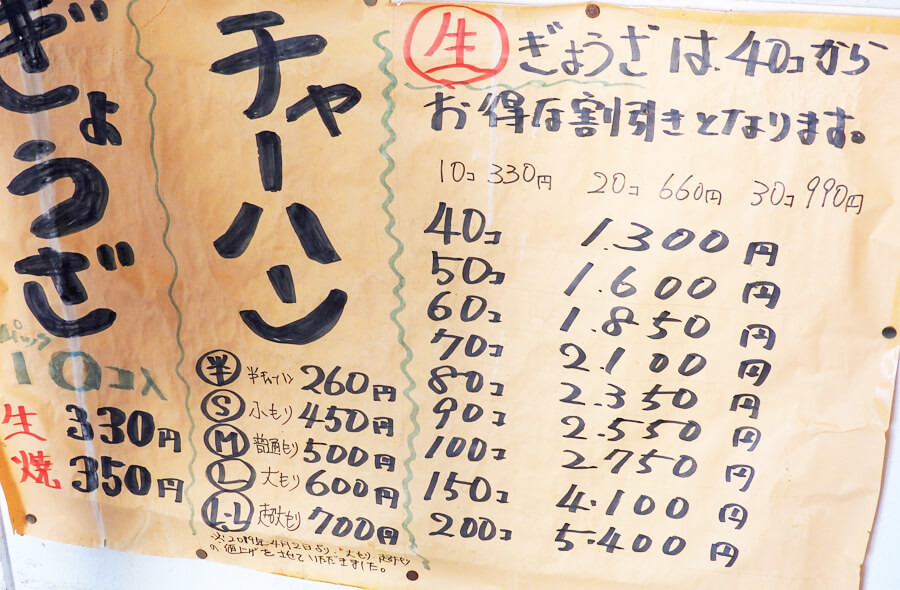 ぎょうざ
パック
10コ入
生 330円
焼 350円
チャーハン
半 半チャーハン 260円
S 小もり 450円
M 普通もり 500円
L 大もり 600円
L・L 超大もり 700円
※2019年4月12日より、大もり、超大モリ
の値上げをさせていただきました。
生 ぎょうざは、40コから
お得な割引きとなります。
10コ 330円 20コ 660円 30コ 990円
40コ 1.300円
50コ 1.600円
60コ 1.850円
70コ 2.100円
80コ 2.350円
90コ 2.550円
100コ 2.750円
150コ 4.100円
200コ 5.400円